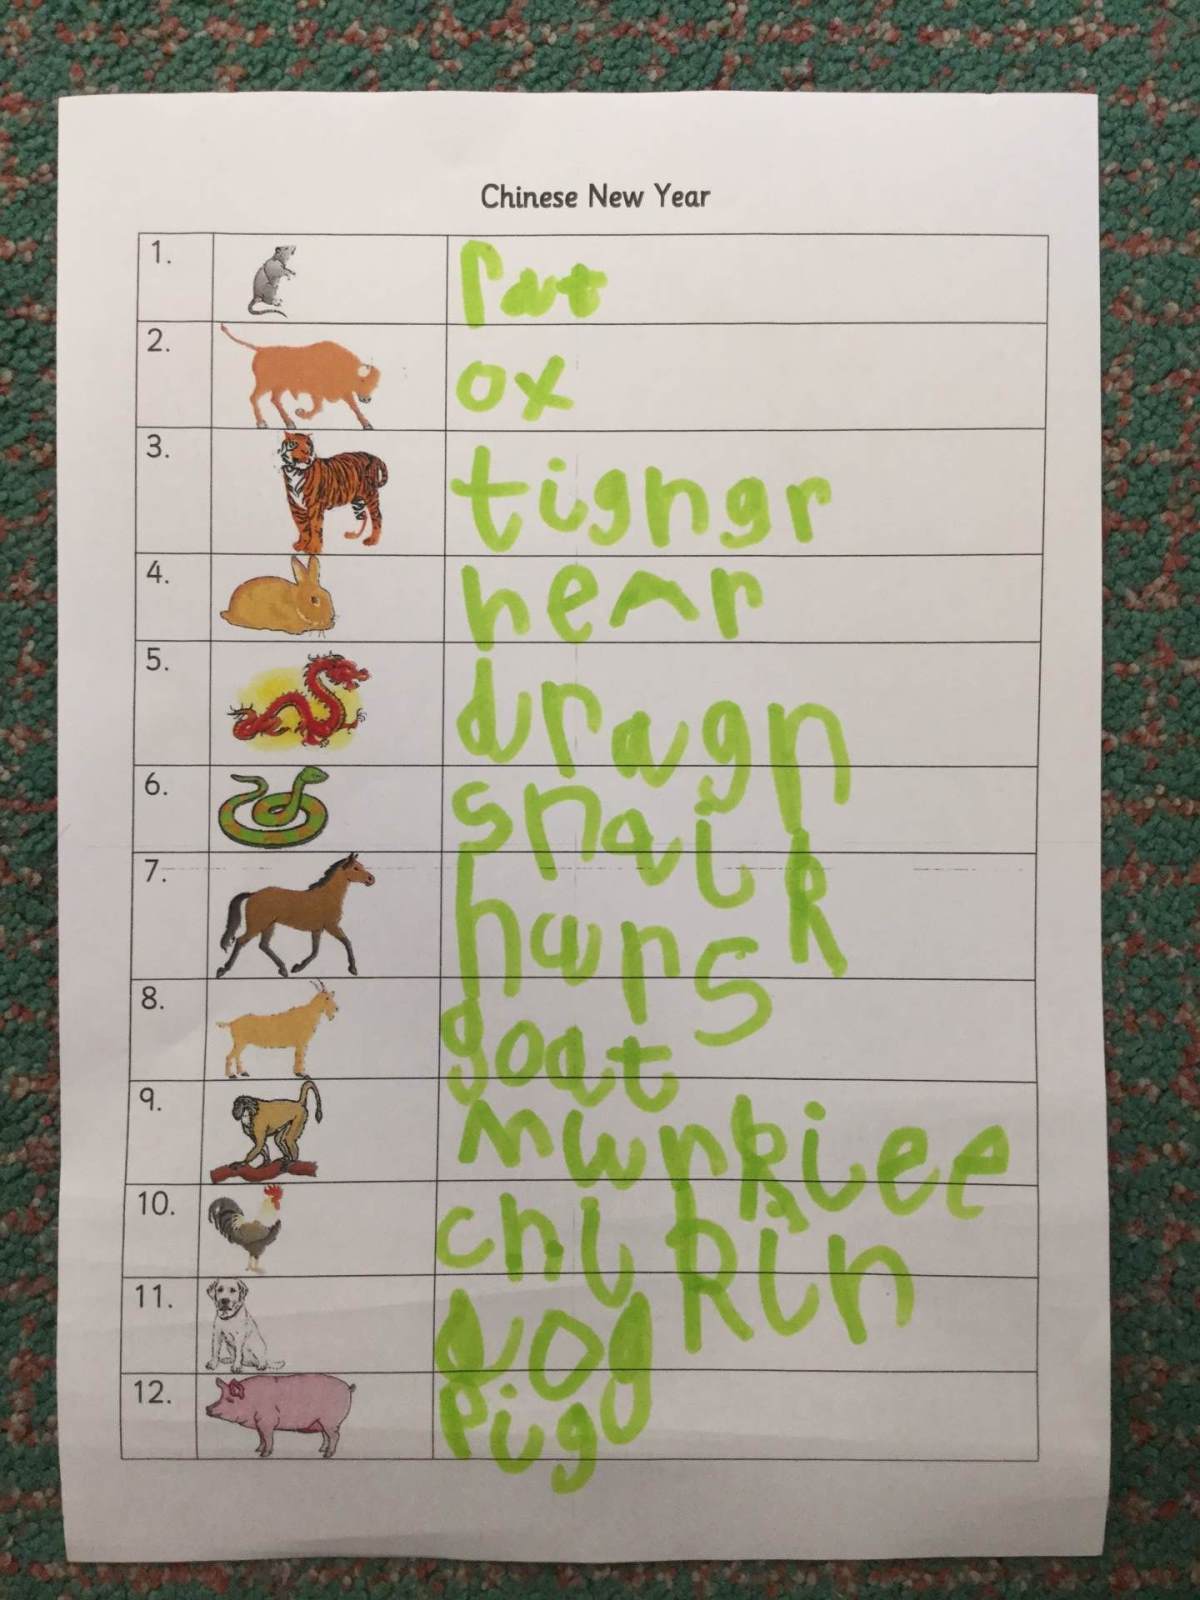 Chinese New Year
1. rat
2. ox
3. tigngr
4. hear
5. dragn
6. snaik
7. hars
8. goat
9. munkiee
10. chikin
11. dog
12. pig